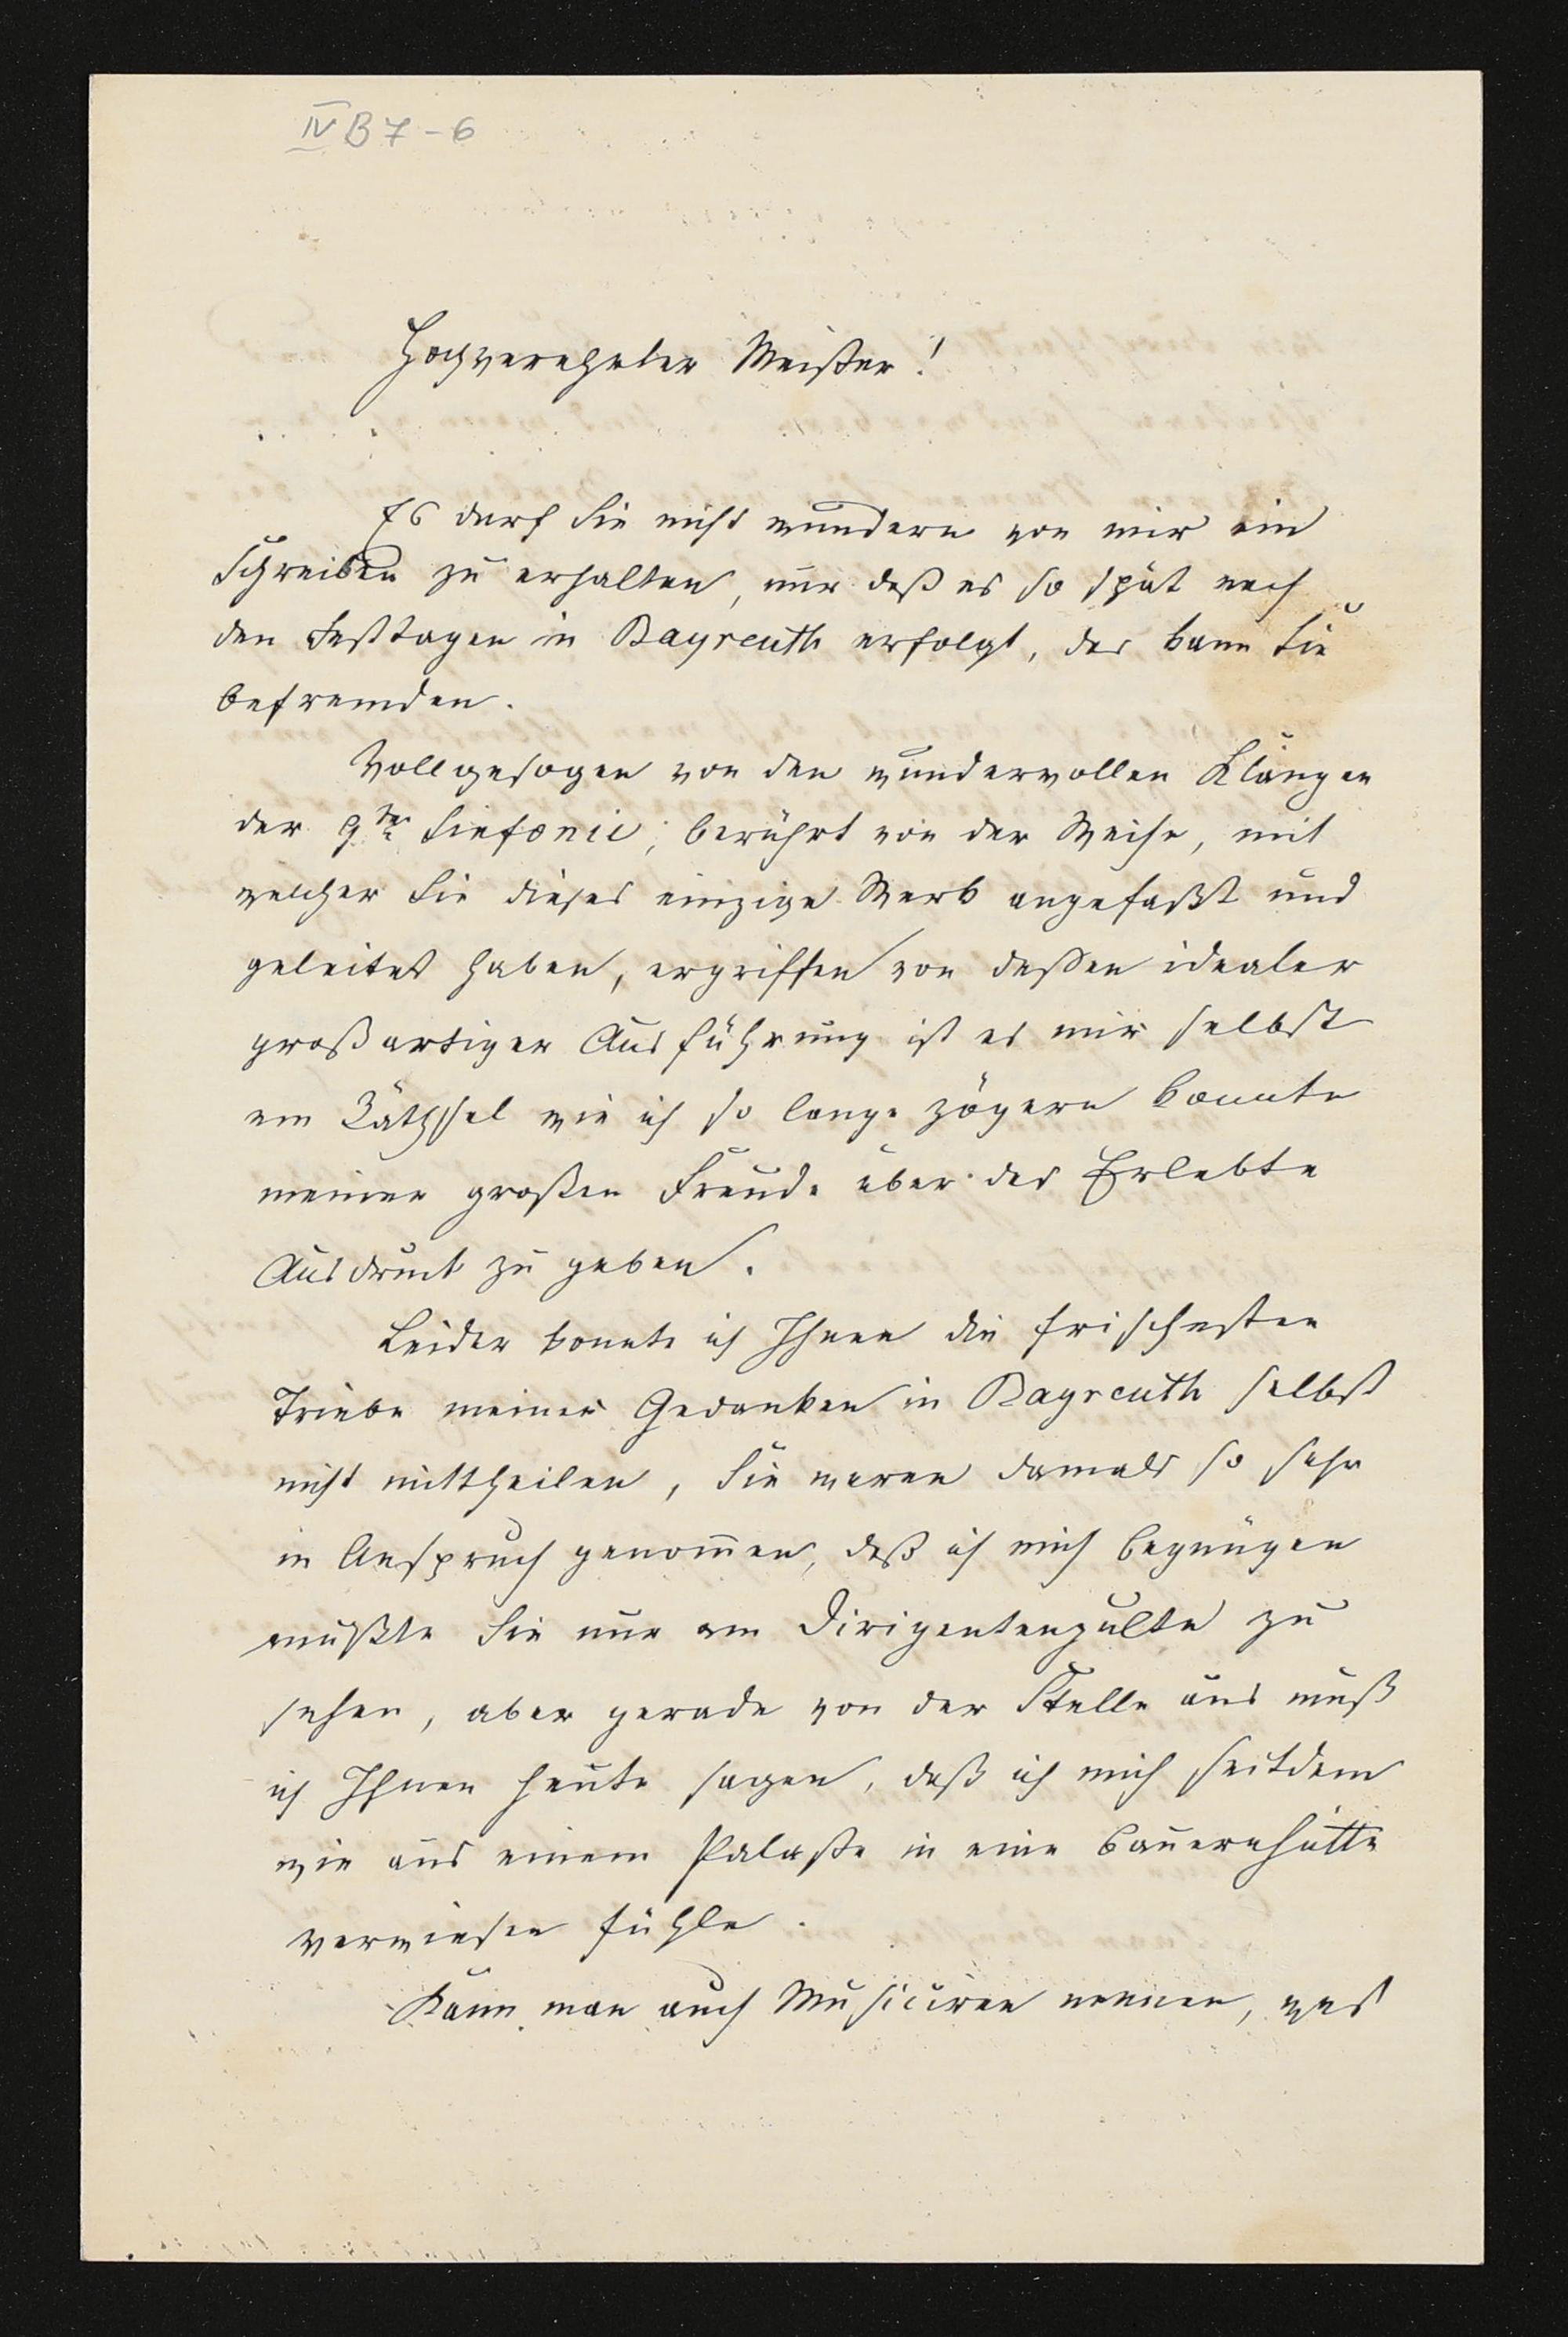 IV B 7-6
Hochverehrter Meister!
Es darf Sie nicht wundern von mir ein
Schreiben zu erhalten, nur daß es so spät nach
den Festtagen in Bayreuth erfolgt, das kann Sie
befremden.
Vollgesogen von den wundervollen Klängen
der 9ten Sinfonie, berührt von der Weise, mit
welcher Sie dieses einzige Werk angefaßt und
geleitet haben, ergriffen von dessen idealer
großartiger Ausführung ist es mir selbst
ein Räthsel wie ich so lange zögern konnte
meiner großen Freude über das Erlebte
Ausdruck zu geben.
Leider konnte ich Ihnen die frischesten
Triebe meiner Gedanken in Bayreuth selbst
nicht mittheilen, Sie waren damals so sehr
in Anspruch genom̄en, daß ich mich begnügen
mußte Sie nur am Dirigentenpulte zu
sehen, aber gerade von der Stelle aus muß
ich Ihnen heute sagen, daß ich mich seitdem
wie aus einem Palaste in eine Bauernhütte
verwiesen fühle.
Kann man auch Musiciren nennen, was